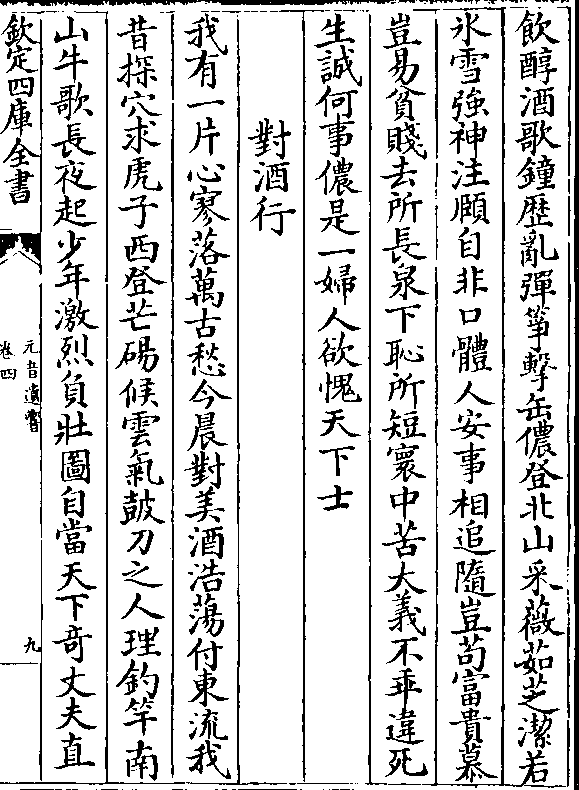 飲醇酒歌鐘歴亂彈箏擊缶儂登北山采薇茹芝潔若
氷雪強神注頤自非口體人安事相追隨豈茍富貴慕
豈易貧賤去所長泉下恥所短寰中苦大義不乖違死
生誠何事儂是一婦人欲愧天下士
對酒行
我有一片心寥落萬古愁今晨對美酒浩蕩付東流我
昔探穴求虎子西登芒碭候雲氣鼓刀之人理釣竿南
山牛歌長夜起少年激烈負壯圖自當天下奇丈夫直
欽定四庫全書
元音遺響
卷四
九